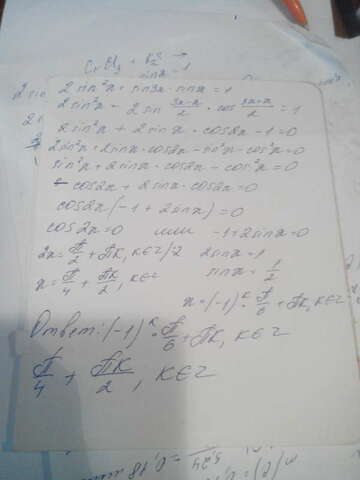 CrCl₃ +
2 sin
2 sin²x + sin3x - sinx = 1
2 sin²x + 2 sin (3x-x)/2 · cos (3x+x)/2 = 1
2 sin²x + 2 sinx · cos2x - 1 = 0
2 sin²x + 2 sinx · cos2x - sin²x - cos²x = 0
sin²x + 2 sinx · cos2x - cos²x = 0
- cos2x + 2 sinx · cos2x = 0
cos2x (-1 + 2 sinx) = 0
cos2x = 0 или -1 + 2 sinx = 0
2x = П/2 + Пk, k∈z /:2 2 sinx = 1
x = П/4 + Пk/2, k∈z sinx = 1/2
x = (-1)ᵏ · П/6 + Пk, k∈z
Ответ: (-1)ᵏ · П/6 + Пk, k∈z
П/4 + Пk/2, k∈z